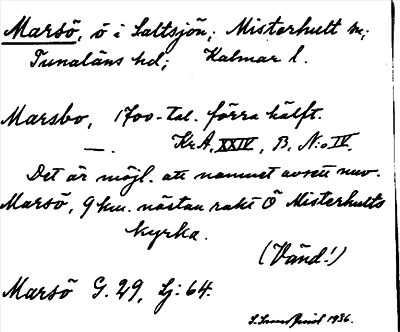 Marsö, ö i Saltsjön; Misterhult sn;
Tunaläns hd; Kalmar l.
Marsbo, 1700-tal. förra hälft.
—. KrA, XXIV, B, N:o IV.
Det är möjl. att namnet avsett nuv.
Marsö, 9 km. nästan rakt Ö Misterhults
kyrka.
(Vänd!)
Marsö G. 29, Lj: 64.
1936.